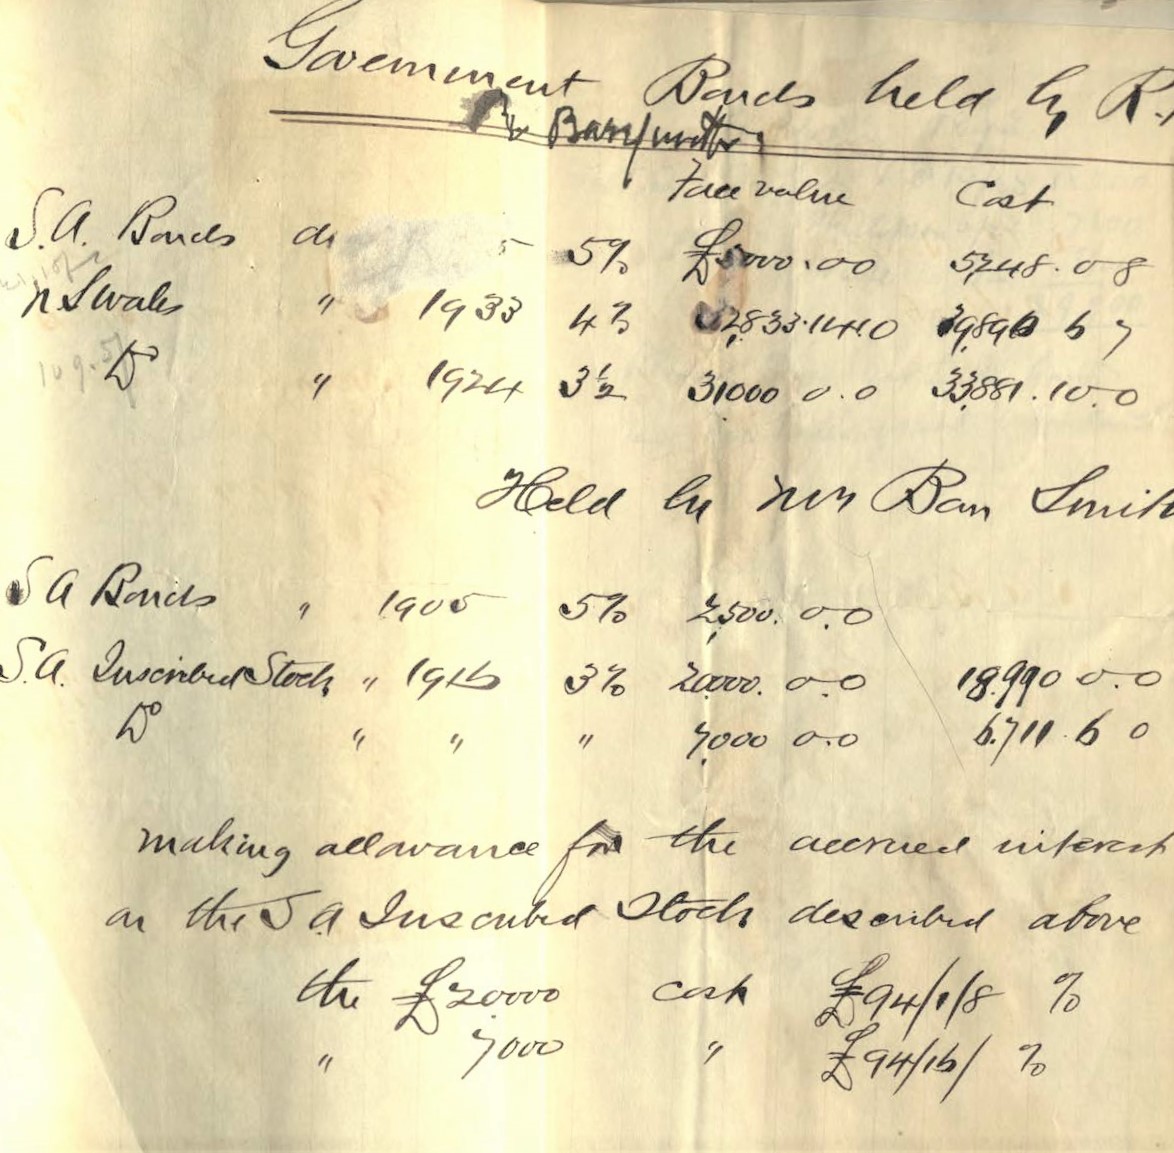 Government Bonds held by R.
Barr Smith
Face value Cost
S.A. Bonds 5% £5000.0.0 5,248.0.8
N. S Wales " 1933 4% 2,833.14.0 6 7
Do " 1924 3½ 31000 0.0 33,881.10.0
Held by Mr Barr Smith
S A Bonds " 1905 5% 2,500. 0.0
S.A. Inscribed Stock " 1916 3% 20,000. 0.0 18,990 0.0
Do " " " 7,000 0.0 6,711.6 0
making allowance for the accrued interest
on the S A Inscribed Stock described above
the £20000 cost £94/1/8 %
" 7000 " £94/16/ %